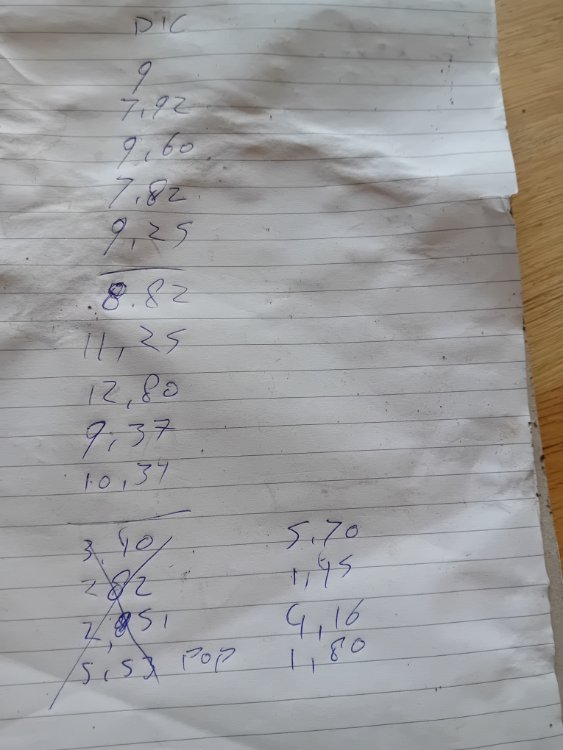 DIC
9
7,92
9,60
7,82
9,25
8.82
11,25
12,80
9,37
10,34
3,40 5,70
282 1,45
2,851 4,16
5,53 POP 1,80